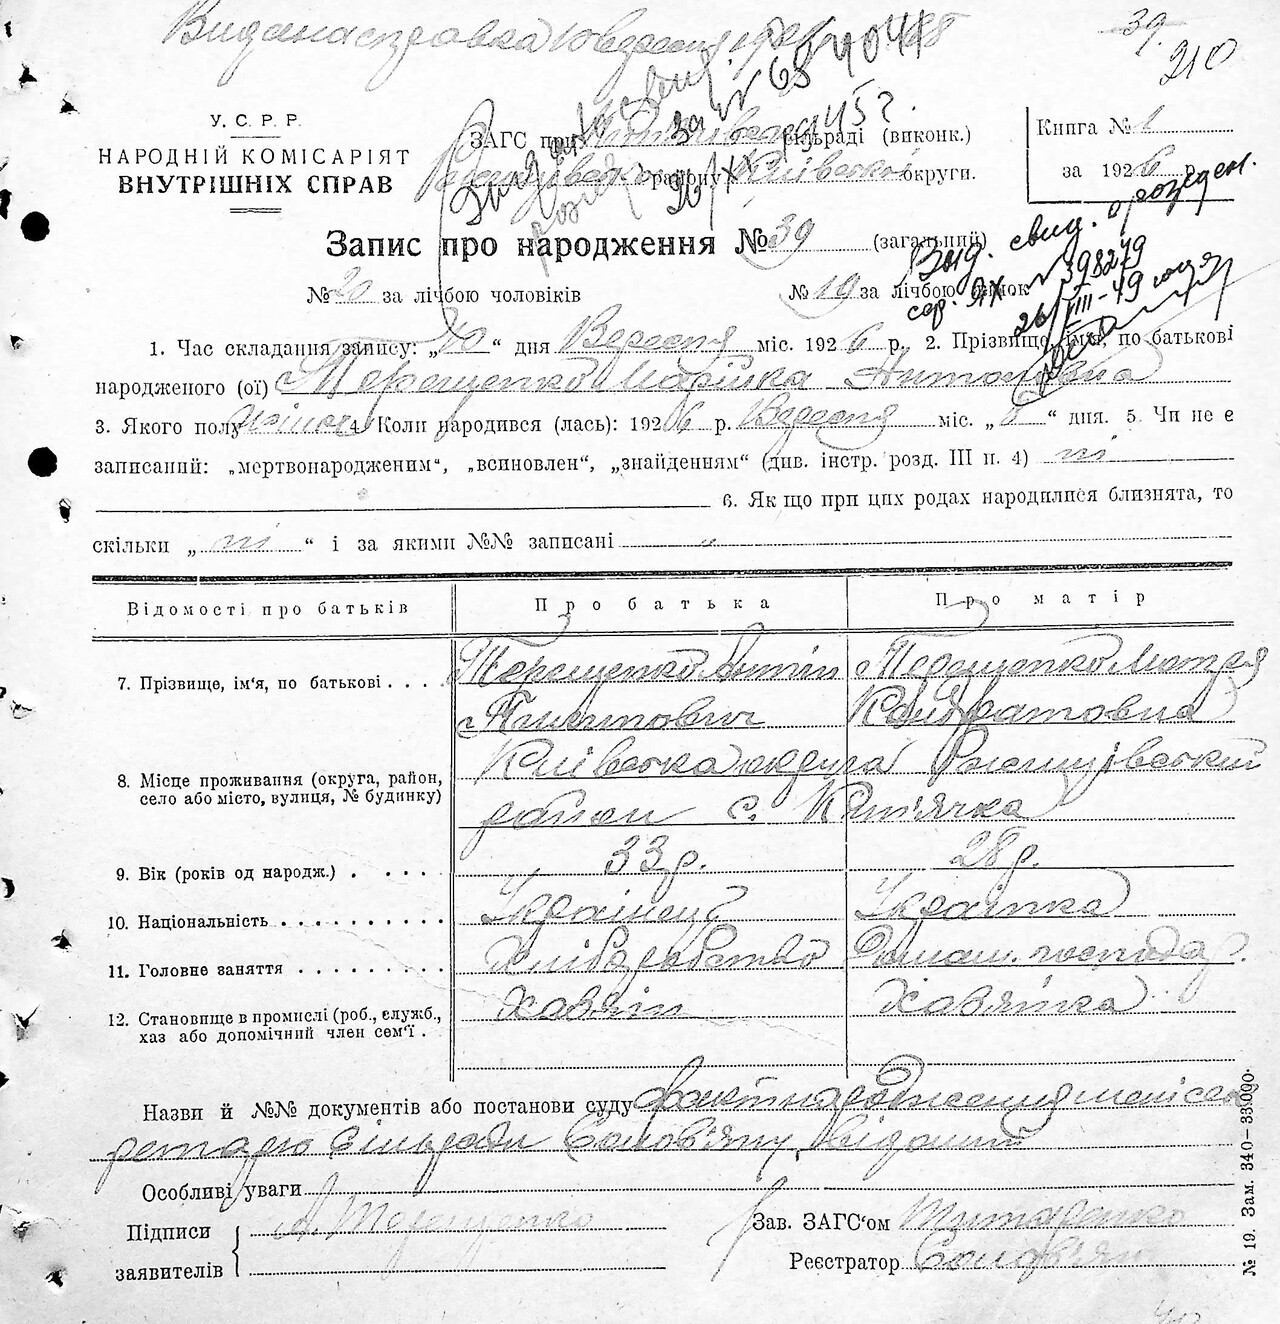 Видана справка 10 вересня
39
210
У. С. Р. Р.
НАРОДНІЙ КОМІСАРІЯТ
ВНУТРІШНІХ СПРАВ
ЗАГС при сільраді (виконк.)
району Київської округи.
Книга № 1
за 1926 р.
Запис про народження № 39 (загальний)
№ 20 за лічбою чоловіків № 19 за лічбою жінок
Выд. свид. о рожден.
сер. ЯХ № 398279
26/VIII-49
1. Час складання запису: „10" дня Вересня міс. 1926 р. 2. Прізвище, ім'я, по батькові
народженого (ої) Терещенко Марійка Антоновна
3. Якого полу жіноч. 4. Коли народився (лась): 1926 р. Вересня міс. „8" дня. 5. Чи не є
записаний: „мертвонародженим", „всиновлен", „знайденням" (див. інстр. розд. III п. 4) ні
6. Якщо при цих родах народилися близнята, то
скільки „ні" і за якими №№ записані „
Відомості про батьків Про батька Про матір
7. Прізвище, ім'я, по батькові . . . . Терещенко Антін Терещенко Мотря
Кондратовна
8. Місце проживання (округа, район, село або місто, вулиця, № будинку) Київська округа Ржищівський
район с.
9. Вік (років од народж.) . . . . . 33 р. 28 р.
10. Національність . . . . . . . . . . Українець Українка
11. Головне заняття . . . . . . . . . Хліборобство Домаш. господар.
12. Становище в промислі (роб., служб., хаз або допомічний член сем'ї . Хазяїн Хазяйка
Назви й №№ документів або постанови суду факт народження мені сек
ретарю Сільради Соловьяну відомий
Особливі уваги
Підписи заявителів А. Терещенко
Зав. ЗАГС'ом Титаренко
Реєстратор Соловьян
№ 19. Зам. 340—33.000.